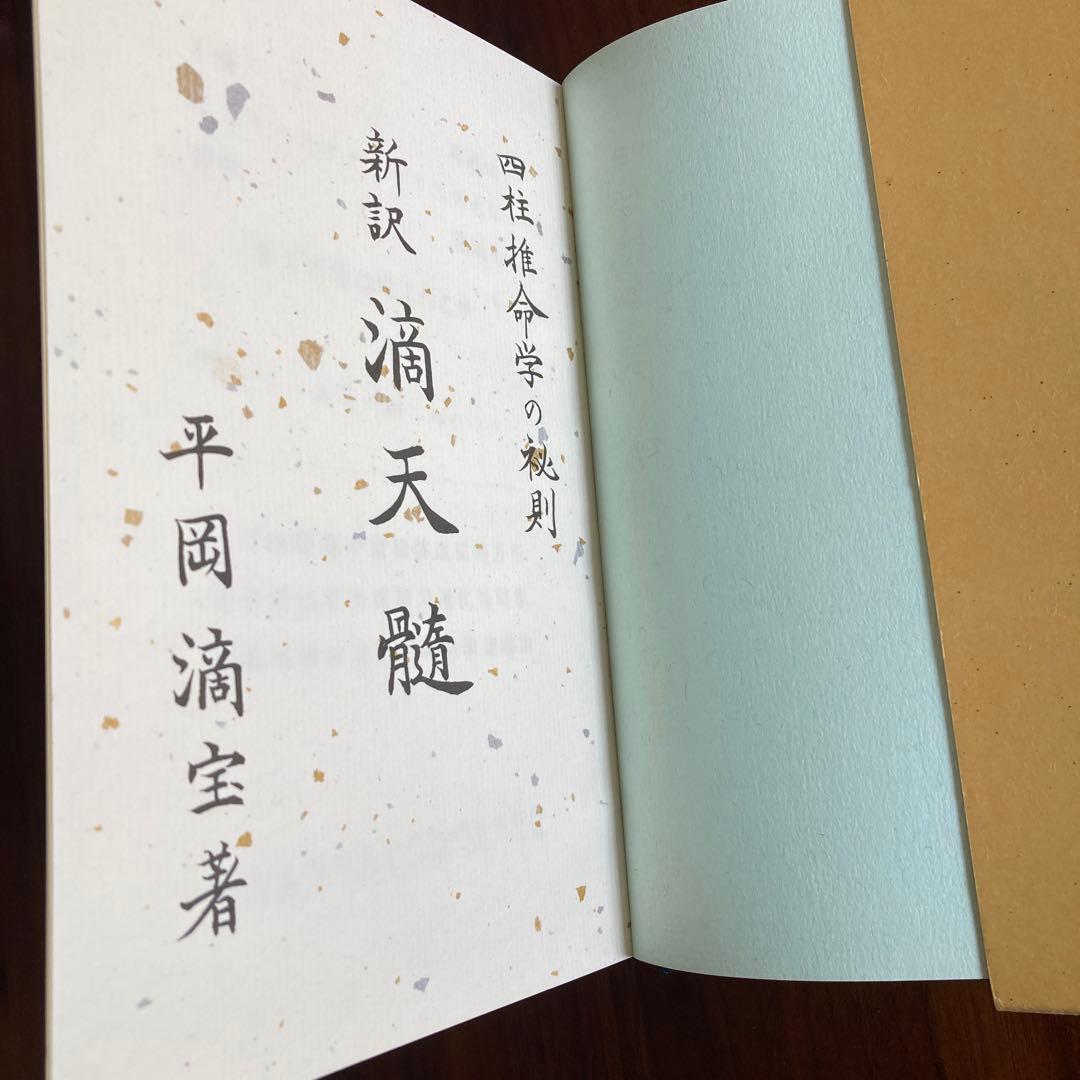 四柱推命学の秘則
新訳 滴天髓
平岡滴宝著